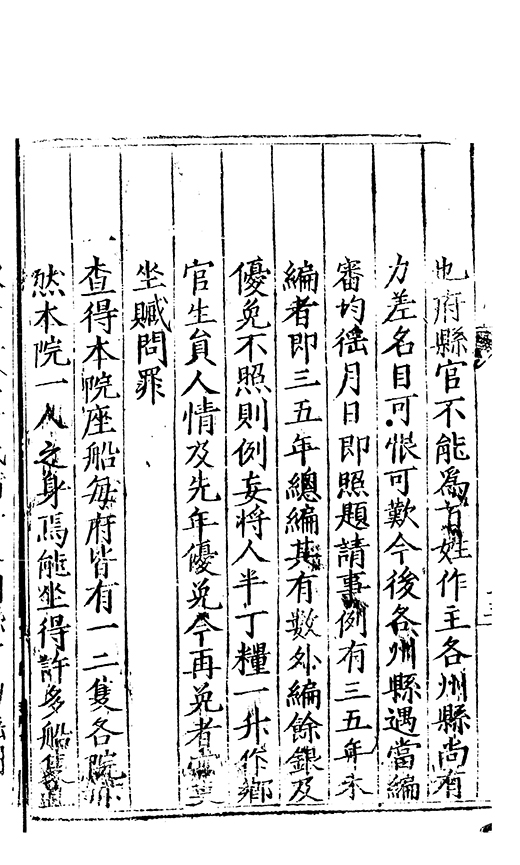 也府縣官不能爲百姓作主各州縣尚有
力差名目可恨可歎今後各州縣遇當編
審均徭月日即照題請事例有三五年未
編者即三五年總編其有數外編餘銀及
優免不照則例妄將人半丁糧一升作鄉
官生員人情及先年優免今再免者
坐贓問罪
查得本院座船每府皆有一二隻各院亦
然本院一人之身焉能坐得許多船隻